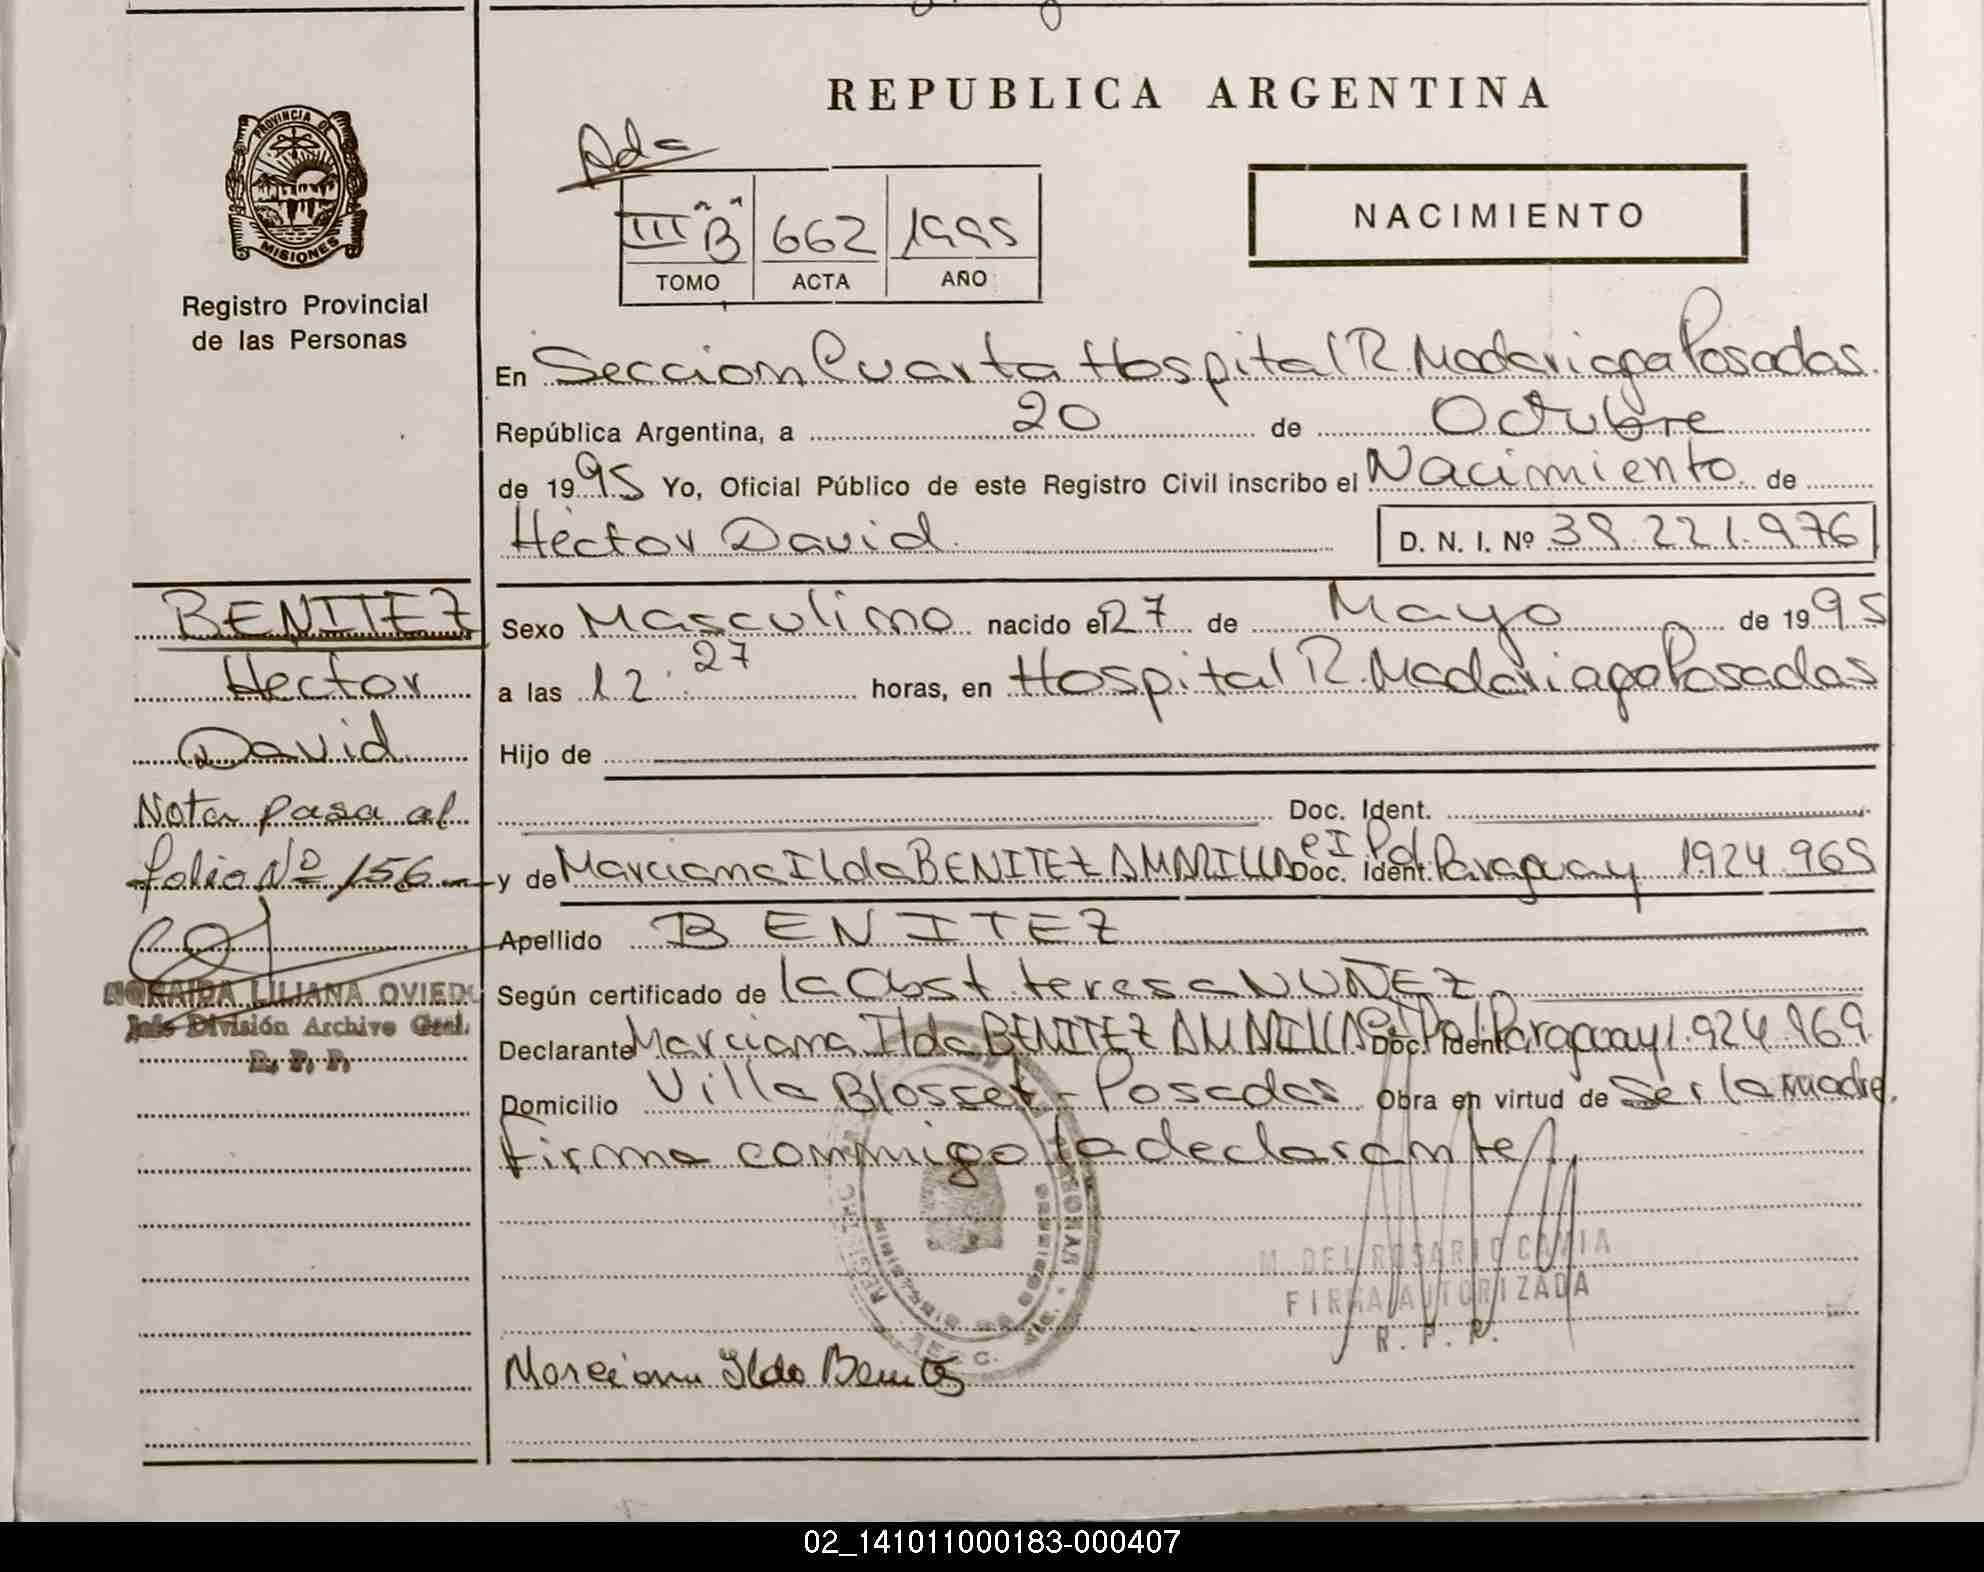 REPUBLICA ARGENTINA
PROVINCIA DE
MISIONES
Registro Provincial
de las Personas
Adc
III "B" 662 1995
TOMO ACTA AÑO
NACIMIENTO
En Seccion Cuarta Hospital R. Madariaga Posadas.
República Argentina, a 20 de Octubre
de 1995 Yo, Oficial Público de este Registro Civil inscribo el Nacimiento de
Héctor David
D. N. I. Nº 39.221.976
BENITEZ
Hector
David
Nota pasa al
folio Nº 156
LILIANA OVIEDO
Jefe División Archivo Gral.
R. P. P.
Sexo Masculino nacido el 27 de Mayo de 1995
a las 12:27 horas, en Hospital R. Madariaga Posadas
Hijo de
Doc. Ident.
y de Marciana Ilda BENITEZ AMARILLA Doc. Ident. CI Pol Paraguay 1924.969
Apellido BENITEZ
Según certificado de la Obst. teresa NUÑEZ
Declarante Marciana Ilda BENITEZ AMARILLA Doc. Ident. CI Pol Paraguay 1.924.969
Domicilio Villa Blosset - Posadas Obra en virtud de Ser la madre.
Firma conmigo la declarante
M. DEL ROSARIO
FIRMA AUTORIZADA
R. P. P.
Marciana Ilda Benitez
02_141011000183-000407